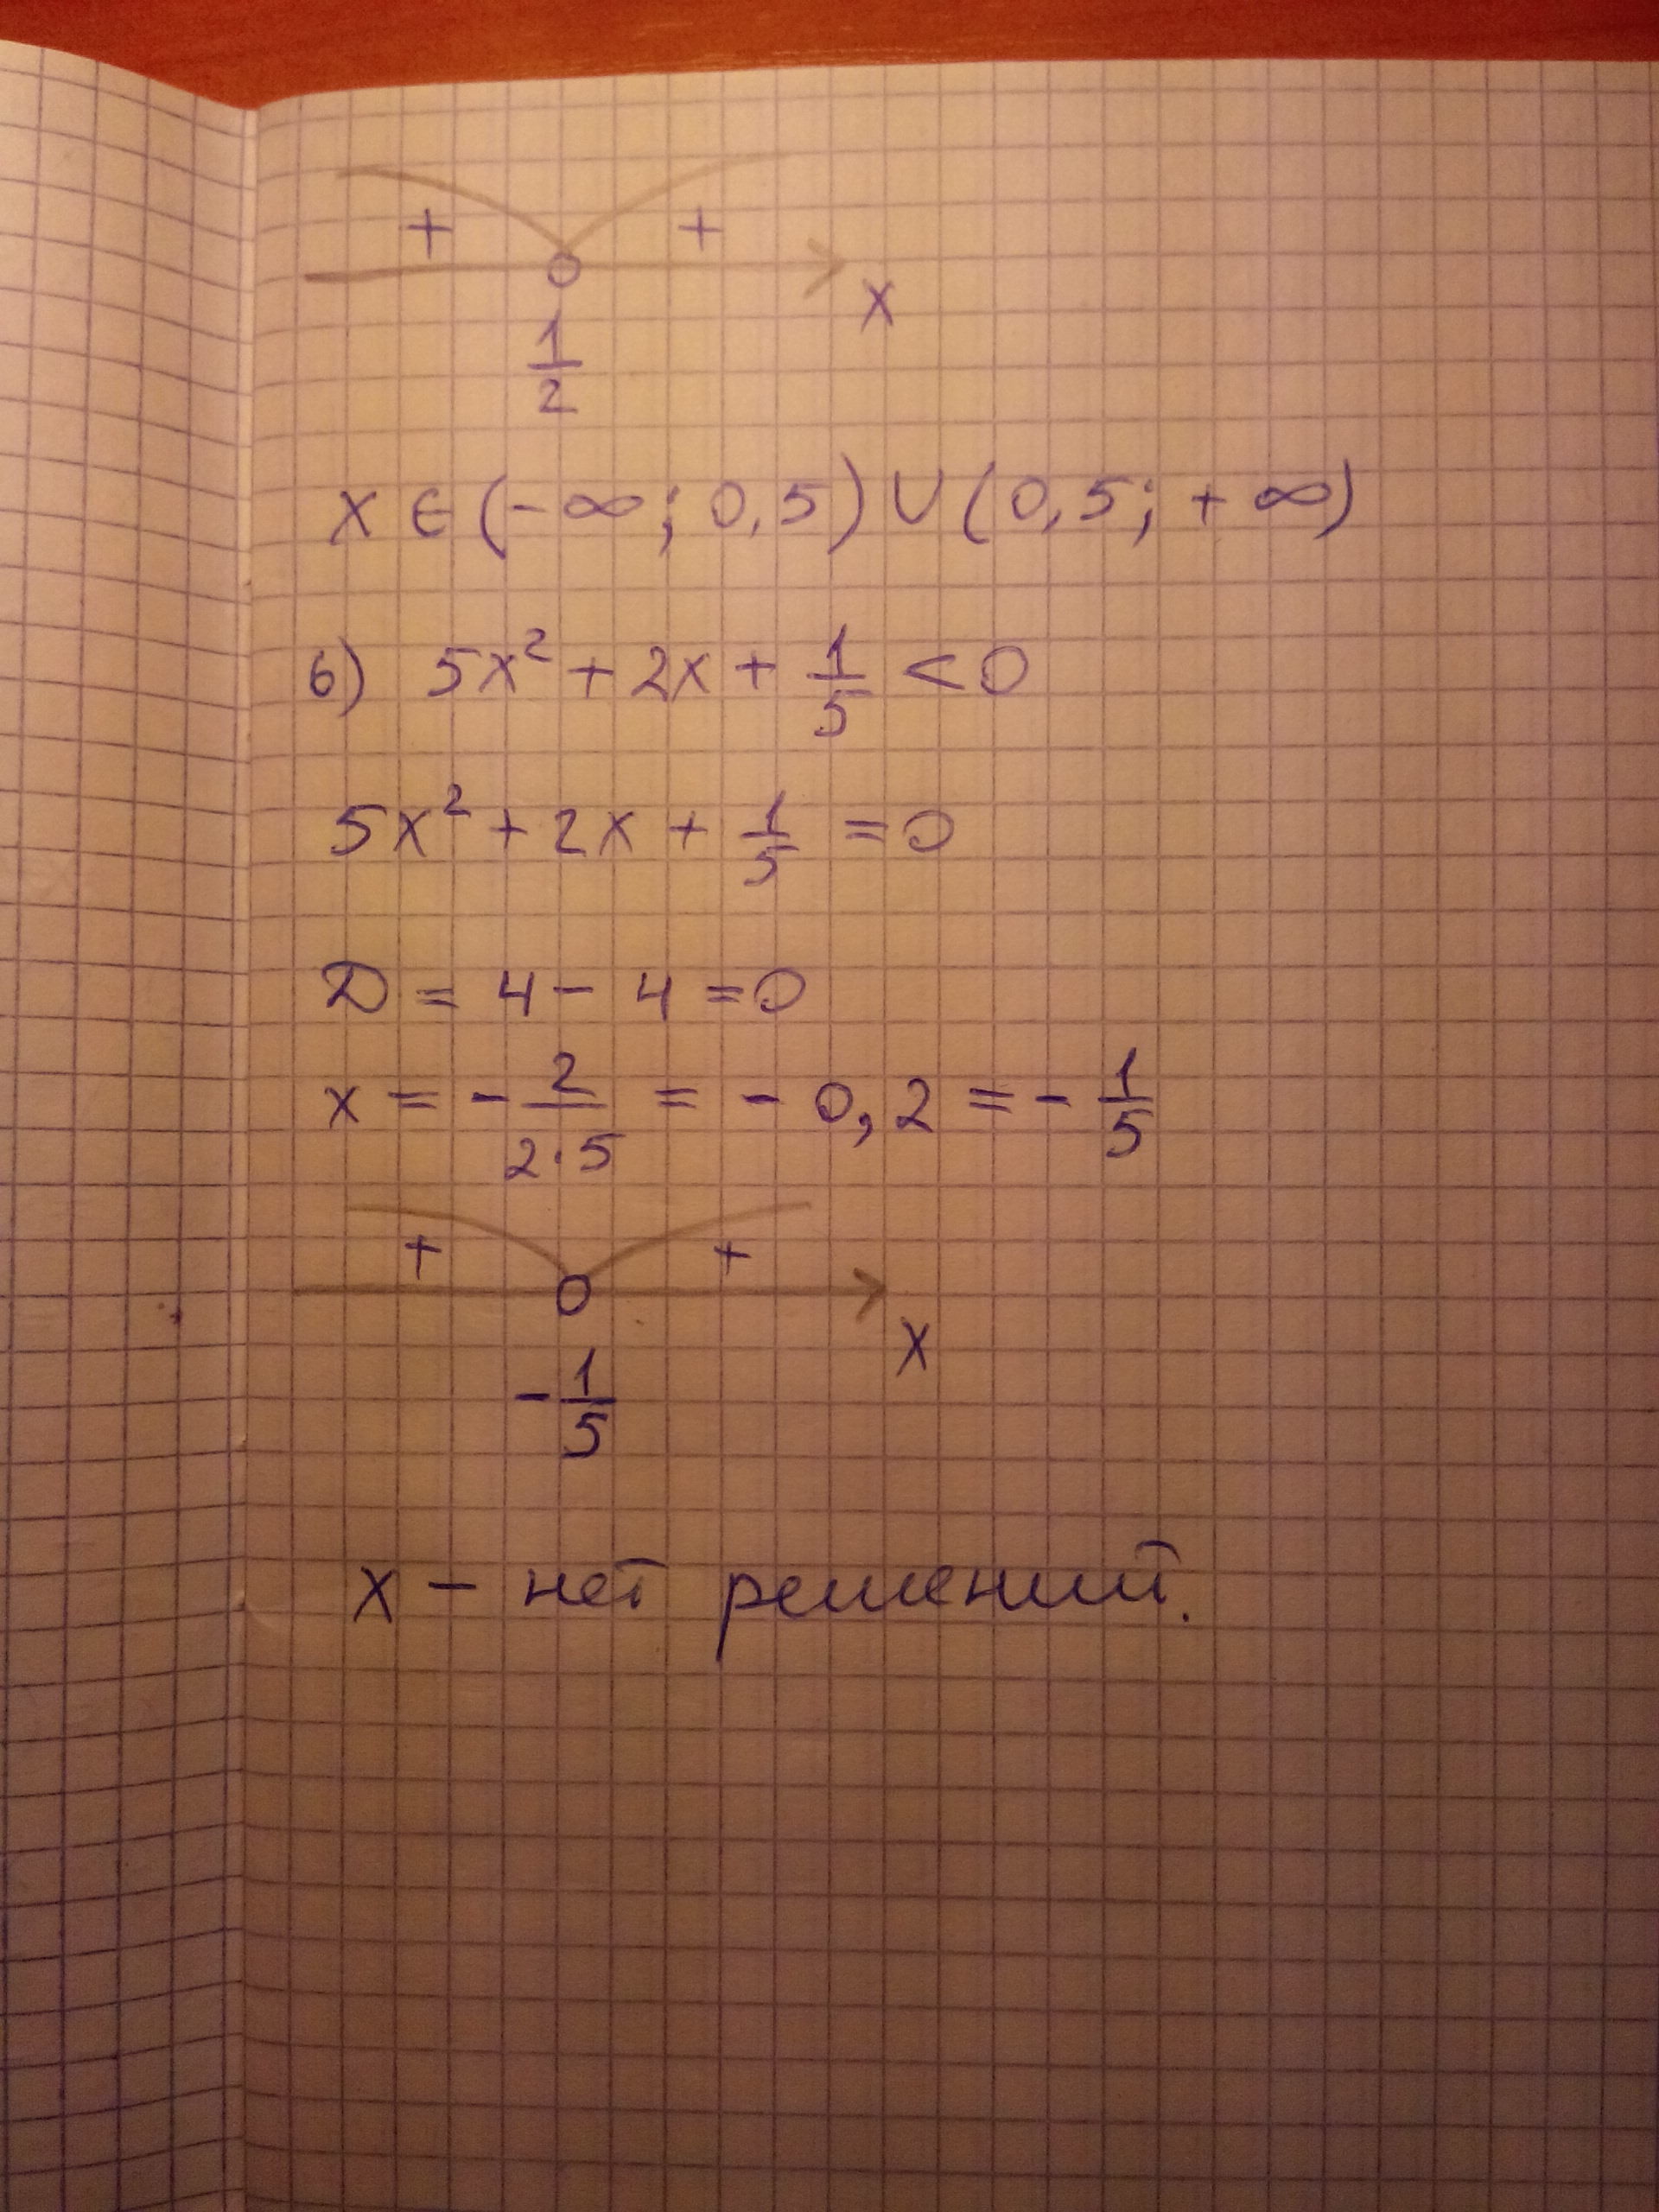 + +
x
1/2
x ∈ (-∞; 0,5) ∪ (0,5; +∞)
6) 5x² + 2x + 1/5 < 0
5x² + 2x + 1/5 = 0
D = 4 - 4 = 0
x = - 2/(2·5) = - 0,2 = - 1/5
+ +
x
- 1/5
x – нет решений.